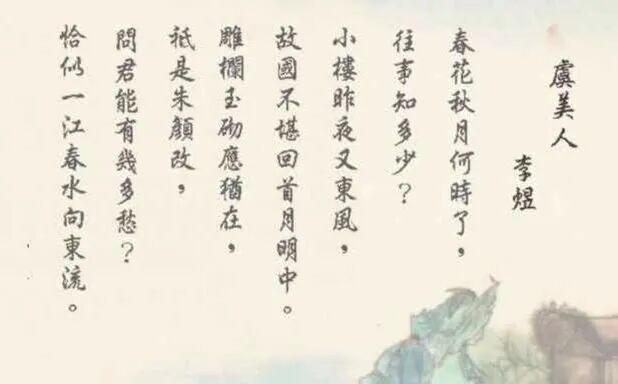 虞美人
李煜
春花秋月何時了，
往事知多少？
小樓昨夜又東風，
故國不堪回首月明中。
雕欄玉砌應猶在，
祗是朱顏改，
問君能有幾多愁？
恰似一江春水向東流。